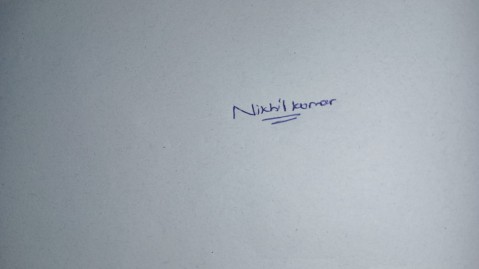 Nikhil kumar